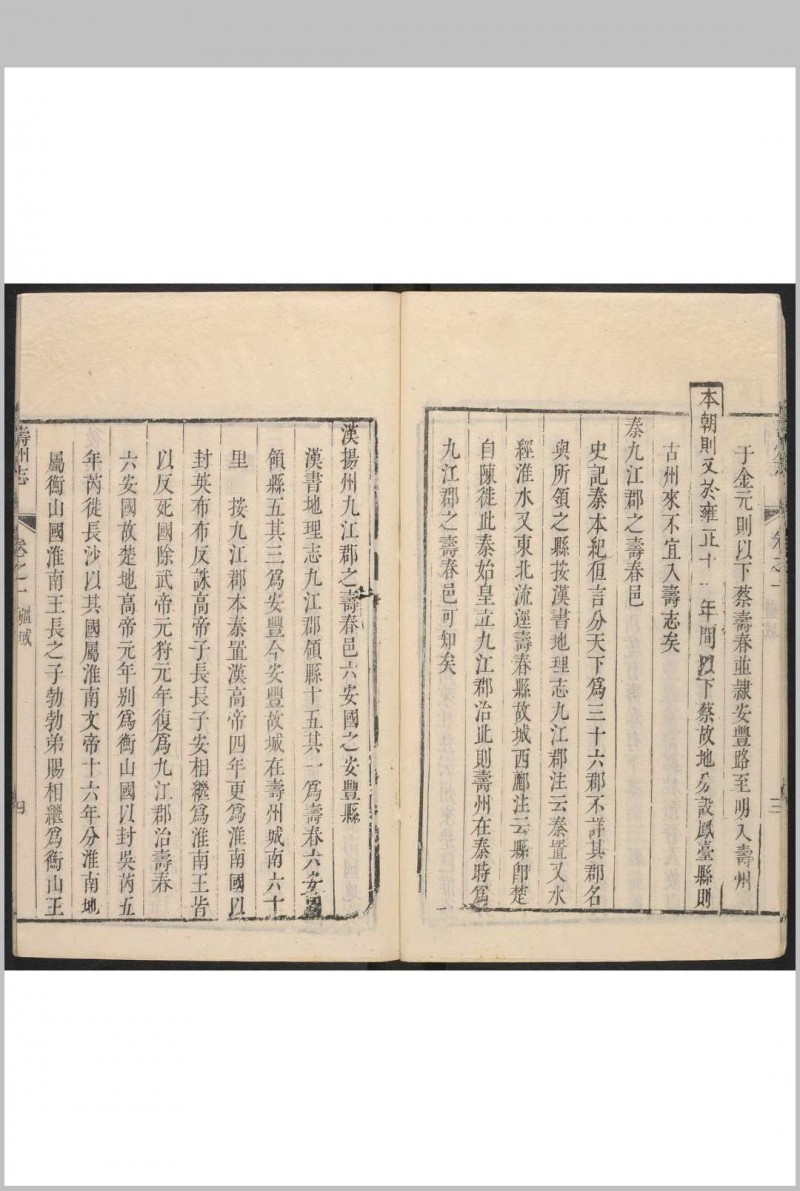 于金元則以下蔡壽春並隸安豐路至明入壽州
本朝則又於雍正十年間以下蔡故地分設鳳臺縣則
古州來不宜入壽志矣
秦九江郡之壽春邑
史記秦本紀但言分天下爲三十六郡不詳其郡名
與所領之縣按漢書地理志九江郡注云秦置又水
經淮水又東北流逕壽春縣故城西酈注云縣卽楚
自陳徙此秦始皇立九江郡治此則壽州在秦時爲
九江郡之壽春邑可知矣
三
漢揚州九江郡之壽春邑六安國之安豐縣
漢書地理志九江郡領縣十五其一爲壽春六安國
領縣五其三爲安豐今安豐故城在壽州城南六十
里 按九江郡本秦置漢高帝四年更爲淮南國以
封英布布反誅高帝子長長子安相繼爲淮南王皆
以反死國除武帝元狩元年復爲九江郡治壽春
六安國故楚地高帝元年别爲衡山國以封吳芮五
年芮徙長沙以其國屬淮南文帝十六年分淮南地
屬衡山國淮南王長之子勃勃弟賜相繼爲衡山王
壽州志 卷之一 疆域 四